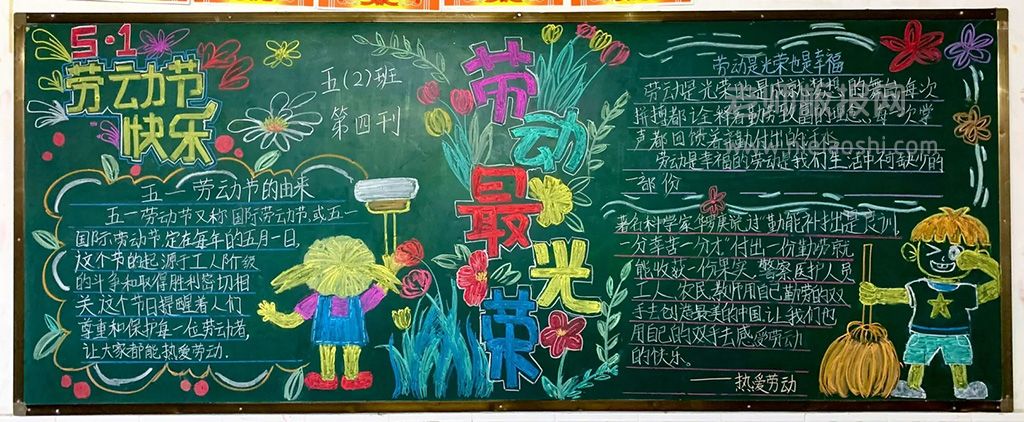 5·1
劳动节
快乐
五(2)班
第四刊
劳动最光荣
五一劳动节的由来
五一劳动节又称国际劳动节,或五一
国际劳动节,定在每年的五月一日,
这个节的起源于工人阶级
的斗争和取得胜利密切相
关,这个节日提醒着人们
尊重和保护每一位劳动者,
让大家都能热爱劳动.
劳动是光荣也是幸福
劳动是光荣 是 每次
拼搏都诠释着勤劳致富的 掌
声都回馈着 付出的
劳动是幸福的劳动是我们生活中 缺少的
一部份
著名科学家华罗庚说过"勤能补拙是良训,
一分辛苦一分才"付出一份勤劳就
能收获一份果实,警察医护人员
工人、农民、教师用自己勤劳的双
手去创造最美的中国让我们也
用自己的双手去感受劳动
的快乐。
——热爱劳动